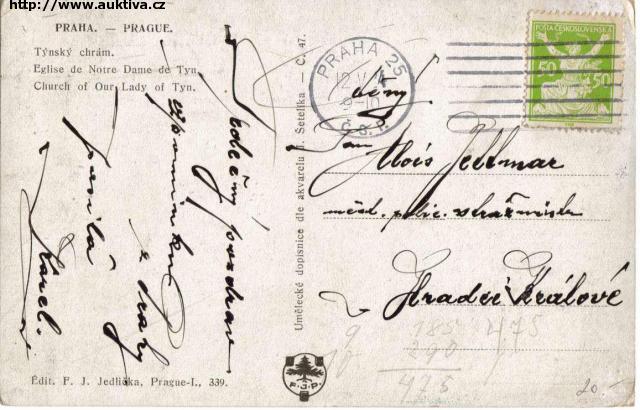 http://www.auktiva.cz
PRAHA. — PRAGUE.
Týnský chrám.
Eglise de Notre Dame de Tyn.
Church of Our Lady of Tyn.
Srdečný pozdrav
vzpomínku z Prahy
posílá
Karel.
Édit. F. J. Jedlička, Prague-I., 339.
Umělecké dopisnice dle akvarelu J. Šetelíka — C. 47.
F.J.P.
PRAHA 25
12 V
Č.S.P.
POŠTA ČESKOSLOVENSKÁ
50 50
Pan
Alois
měst. polic. strážník
v Hradci Králové
185 475
290
475
20.-